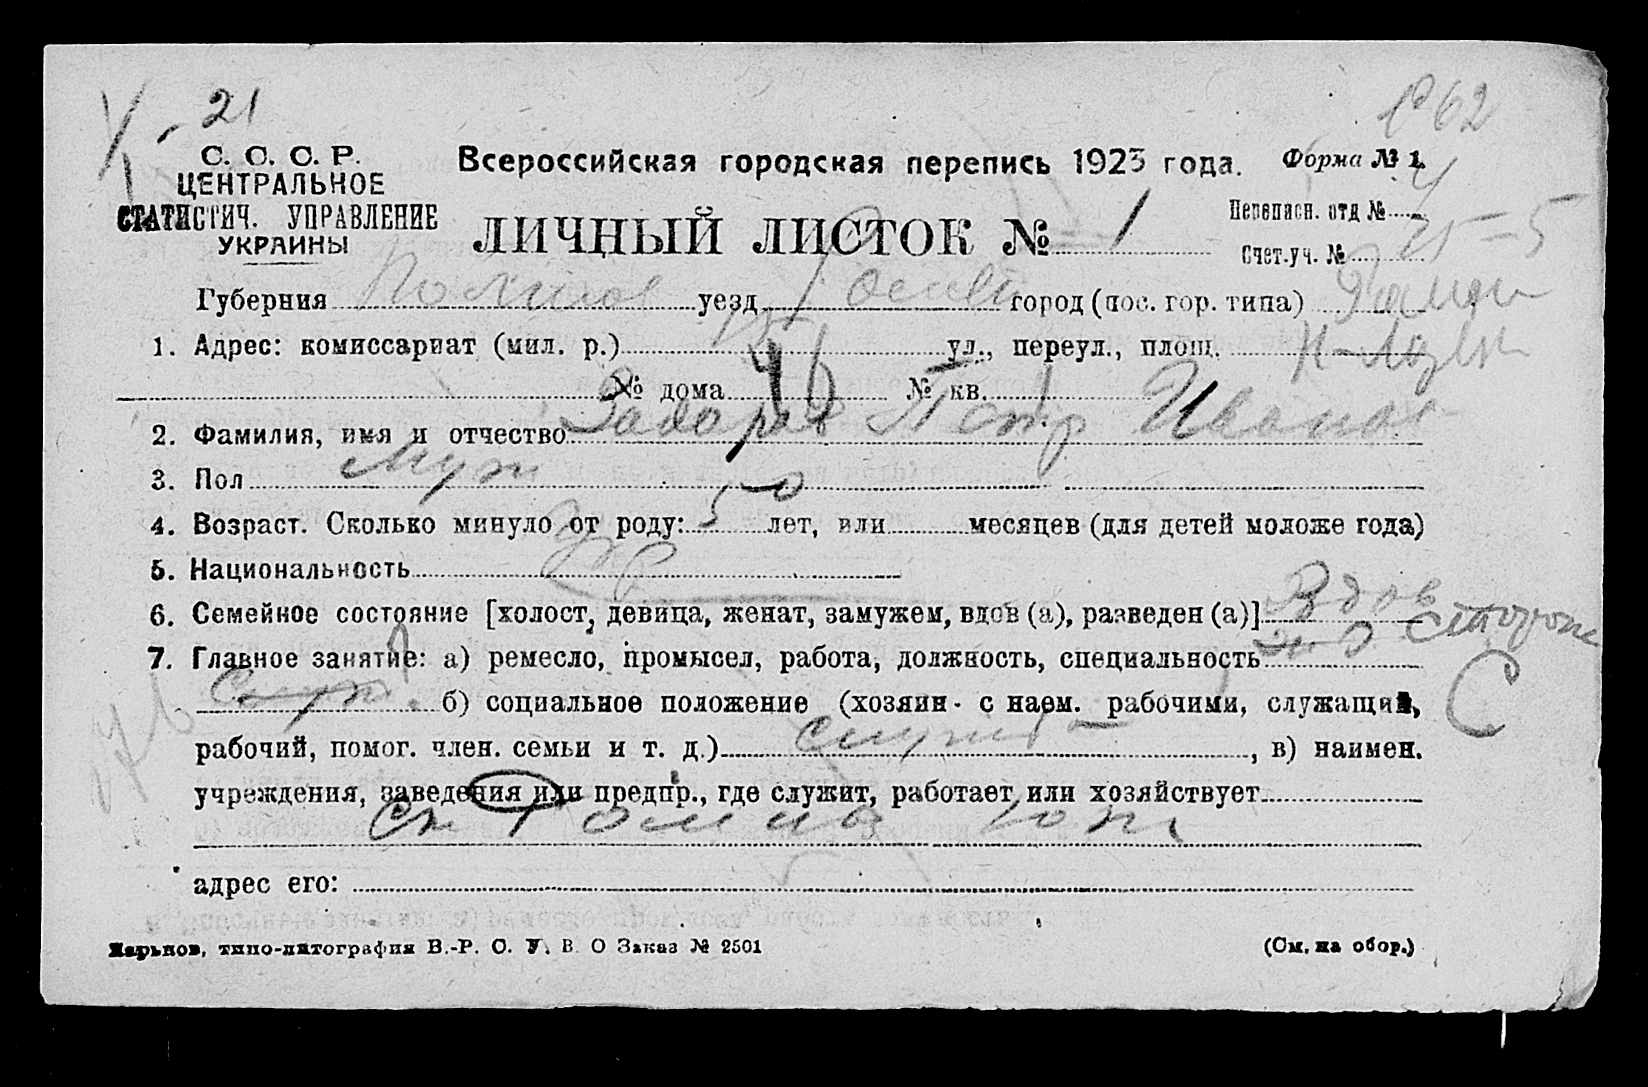 21
1962
С. С. С. Р.
ЦЕНТРАЛЬНОЕ
СТАТИСТИЧ. УПРАВЛЕНИЕ
УКРАИНЫ
Всероссийская городская перепись 1923 года. Форма № 1.
ЛИЧНЫЙ ЛИСТОК № 1
Переписн. отд №
Счет.уч. №
Губерния уезд город (пос. гор. типа)
1. Адрес: комиссариат (мил. р.) ул., переул., площ.
№ дома 46 № кв. 1
2. Фамилия, имя и отчество Петр Иванов
3. Пол муж
4. Возраст. Сколько минуло от роду: 50 лет, или месяцев (для детей моложе года)
5. Национальность Укр
6. Семейное состояние [холост, девица, женат, замужем, вдов (а), разведен (а)] Вдов
7. Главное занятие: а) ремесло, промысел, работа, должность, специальность сторож
С
б) социальное положение (хозяин - с наем. рабочими, служащий,
рабочий, помог. член. семьи и т. д.) , в) наимен.
учреждения, заведения или предпр., где служит, работает или хозяйствует
адрес его:
Харьков, типо-литография В.-Р. С. У. В. О Заказ № 2501 (См. на обор.)